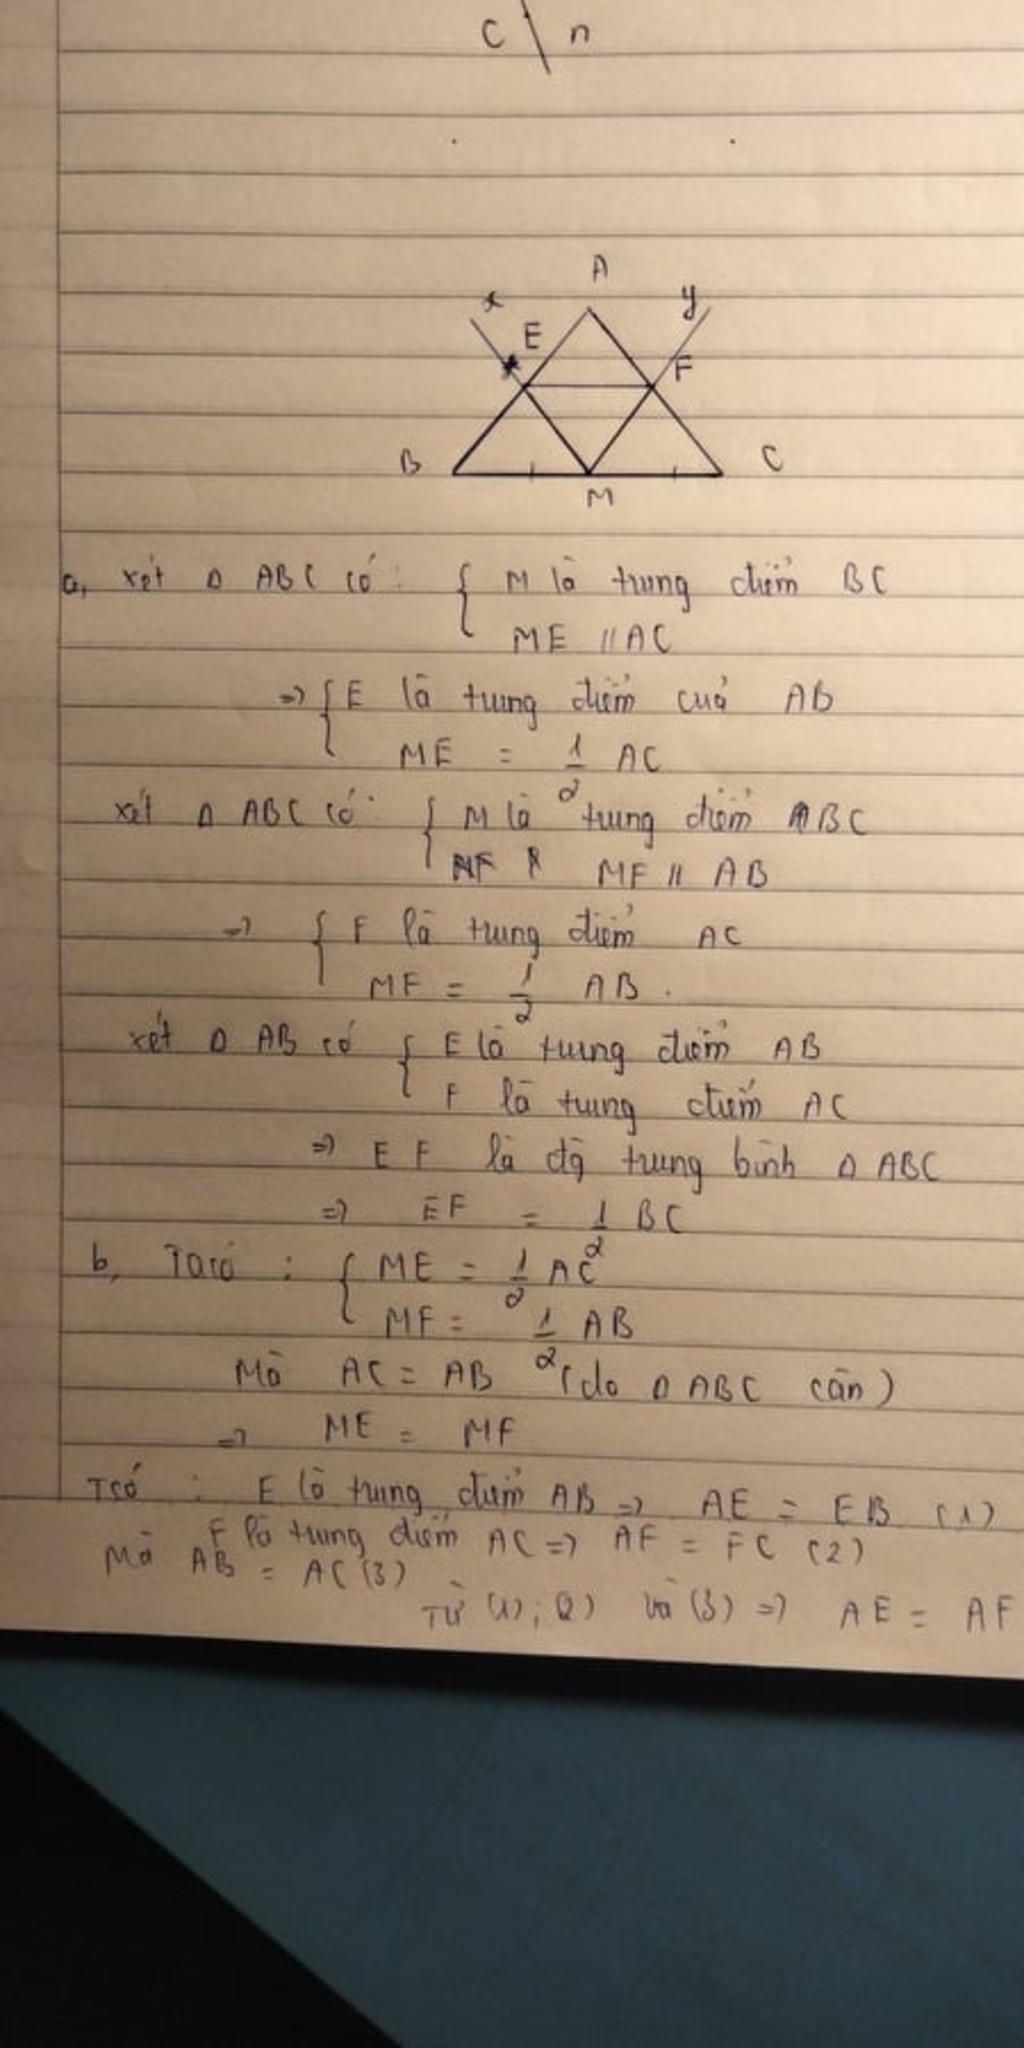 C n
A
x y
E F
B C
M
a, xét Δ ABC có : { M là trung điểm BC
ME // AC
=> { E là trung điểm của AB
ME = 1/2 AC
xét Δ ABC có : { M là trung điểm BC
MF // AB
=> { F là trung điểm AC
MF = 1/2 AB .
xét Δ AB có { E là trung điểm AB
F là trung điểm AC
=> EF là đg trung bình Δ ABC
=> EF = 1/2 BC
b, Ta có : { ME = 1/2 AC
MF = 1/2 AB
Mà AC = AB (do Δ ABC cân)
=> ME = MF
Tcó : E là trung điểm AB => AE = EB (1)
F là trung điểm AC => AF = FC (2)
Mà AB = AC (3)
Từ (1) ; (2) và (3) => AE = AF